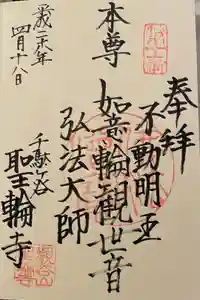 奉拝
不動明王
本尊 如意輪觀世音
弘法大師
千駄ヶ谷
聖輪寺
平成年
四月十八日